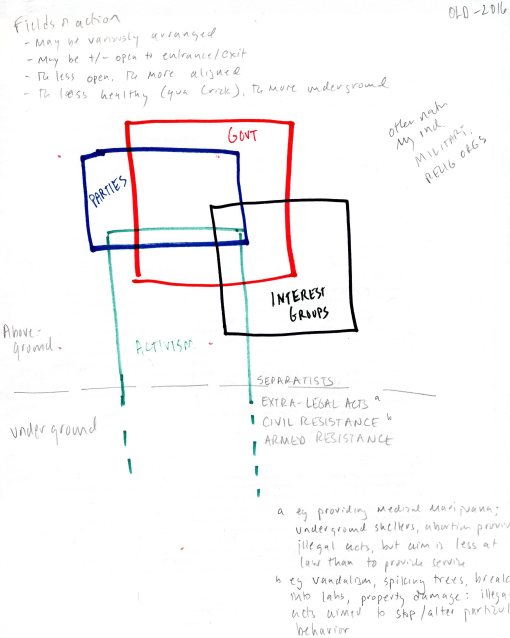 OLD - 2016
Fields of action
- May be variously arranged
- May be +/- open to entrance/exit
- The less open, the more aligned
- The less healthy (qua Crick), the more underground
GOVT
PARTIES
other
may incl
MILITARY
RELIG ORGS
INTEREST
GROUPS
Above-
ground
ACTIVISM
SEPARATISTS
underground
EXTRA-LEGAL ACTS a
CIVIL RESISTANCE b
ARMED RESISTANCE
a eg providing medical marijuana;
underground shelters, abortion provi
illegal acts, but aim is less at
law than to provide service
b eg vandalism, spiking trees, break
into labs, property damage: illega
acts aimed to stop/alter particul
behavior